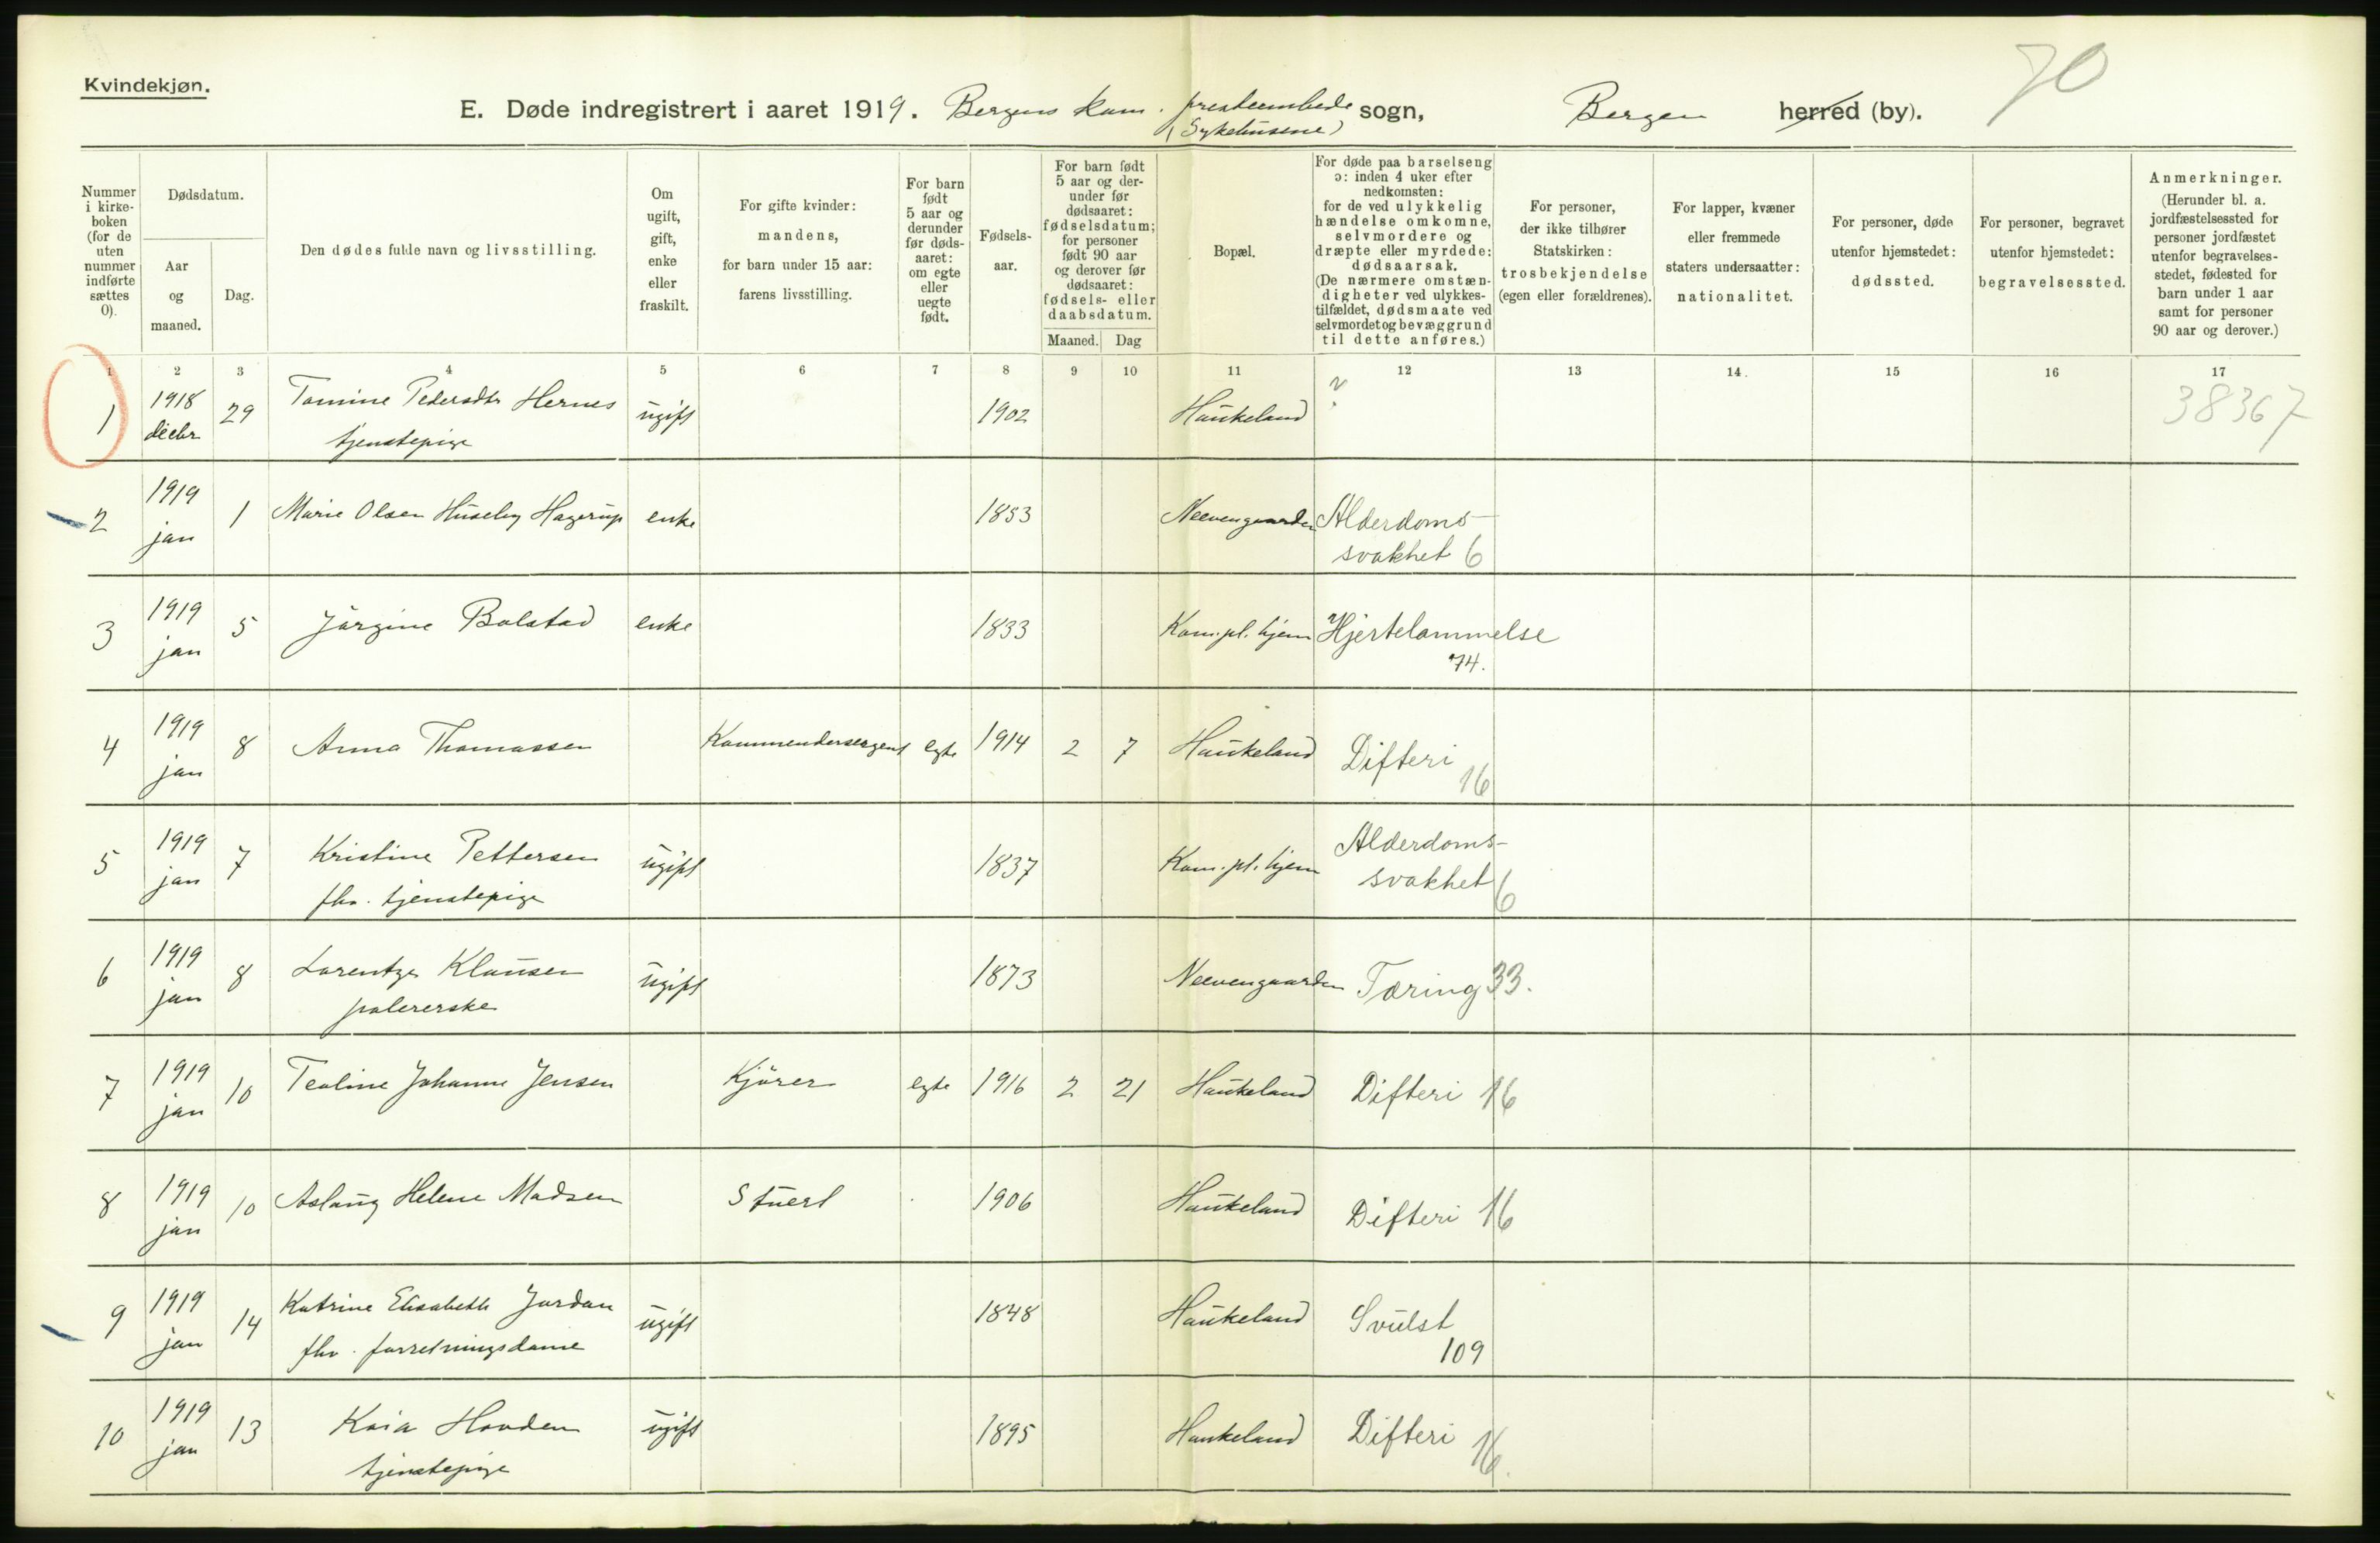 Kvindekjøn.
70
E. Døde indregistrert i aaret 1919. Bergens kom. presteembede (Sykehusene) sogn, Bergen herred (by).
Nummer i kirkeboken (for de uten nummer indførte sættes 0).
Dødsdatum.
Aar og maaned.
Dag.
Den dødes fulde navn og livsstilling.
Om ugift, gift, enke eller fraskilt.
For gifte kvinder: mandens, for barn under 15 aar: farens livsstilling.
For barn født 5 aar og derunder før dødsaaret: om egte eller uegte født.
Fødselsaar.
For barn født 5 aar og derunder før dødsaaret: fødselsdatum; for personer født 90 aar og derover før dødsaaret: fødsels- eller daabsdatum.
Maaned. Dag
Bopæl.
For døde paa barselseng ɔ: inden 4 uker efter nedkomsten: for de ved ulykkelig hændelse omkomne, selvmordere og dræpte eller myrdede: dødsaarsak. (De nærmere omstændigheter ved ulykkestilfældet, dødsmaate ved selvmordet og bevæggrund til dette anføres.)
For personer, der ikke tilhører Statskirken: trosbekjendelse (egen eller forældrenes).
For lapper, kvæner eller fremmede staters undersaatter: nationalitet.
For personer, døde utenfor hjemstedet: dødssted.
For personer, begravet utenfor hjemstedet: begravelsessted.
Anmerkninger. (Herunder bl. a. jordfæstelsessted for personer jordfæstet utenfor begravelsesstedet, fødested for barn under 1 aar samt for personer 90 aar og derover.)
1 2 3 4 5 6 7 8 9 10 11 12 13 14. 15 16 17
1 1918 decbr 29 Tomine Pedersdtr Hernes ugift 1902 Haukeland ? 38367
tjenestepige
2 1919 jan 1 Marie Olsen Huseby Hagerup enke 1853 Neevengaarden Alderdoms-
svakhet 6
3 1919 jan 5 Jörgine Bolstad enke 1833 Kom. pl. hjem Hjertelammelse
74.
4 1919 jan 8 Anna Thomassen Kommendersergent egte 1914 2 7 Haukeland Difteri 16
5 1919 jan 7 Kristine Pettersen ugift 1837 Kom. pl. hjem Alderdoms-
fhv. tjenestepige svakhet 6
6 1919 jan 8 Lorentze Klausen ugift 1873 Neevengaarden Tæring 33.
polererske
7 1919 jan 10 Teoline Johanne Jensen Kjörer egte 1916 2 21 Haukeland Difteri 16
8 1919 jan 10 Aslaug Helene Madsen Stuert 1906 Haukeland Difteri 16
9 1919 jan 14 Katrine Elisabeth Jordan ugift 1848 Haukeland Svulst
fhv. forretningsdame 109
10 1919 jan 13 Kaia Hovden ugift 1895 Haukeland Difteri 16.
tjenestepige